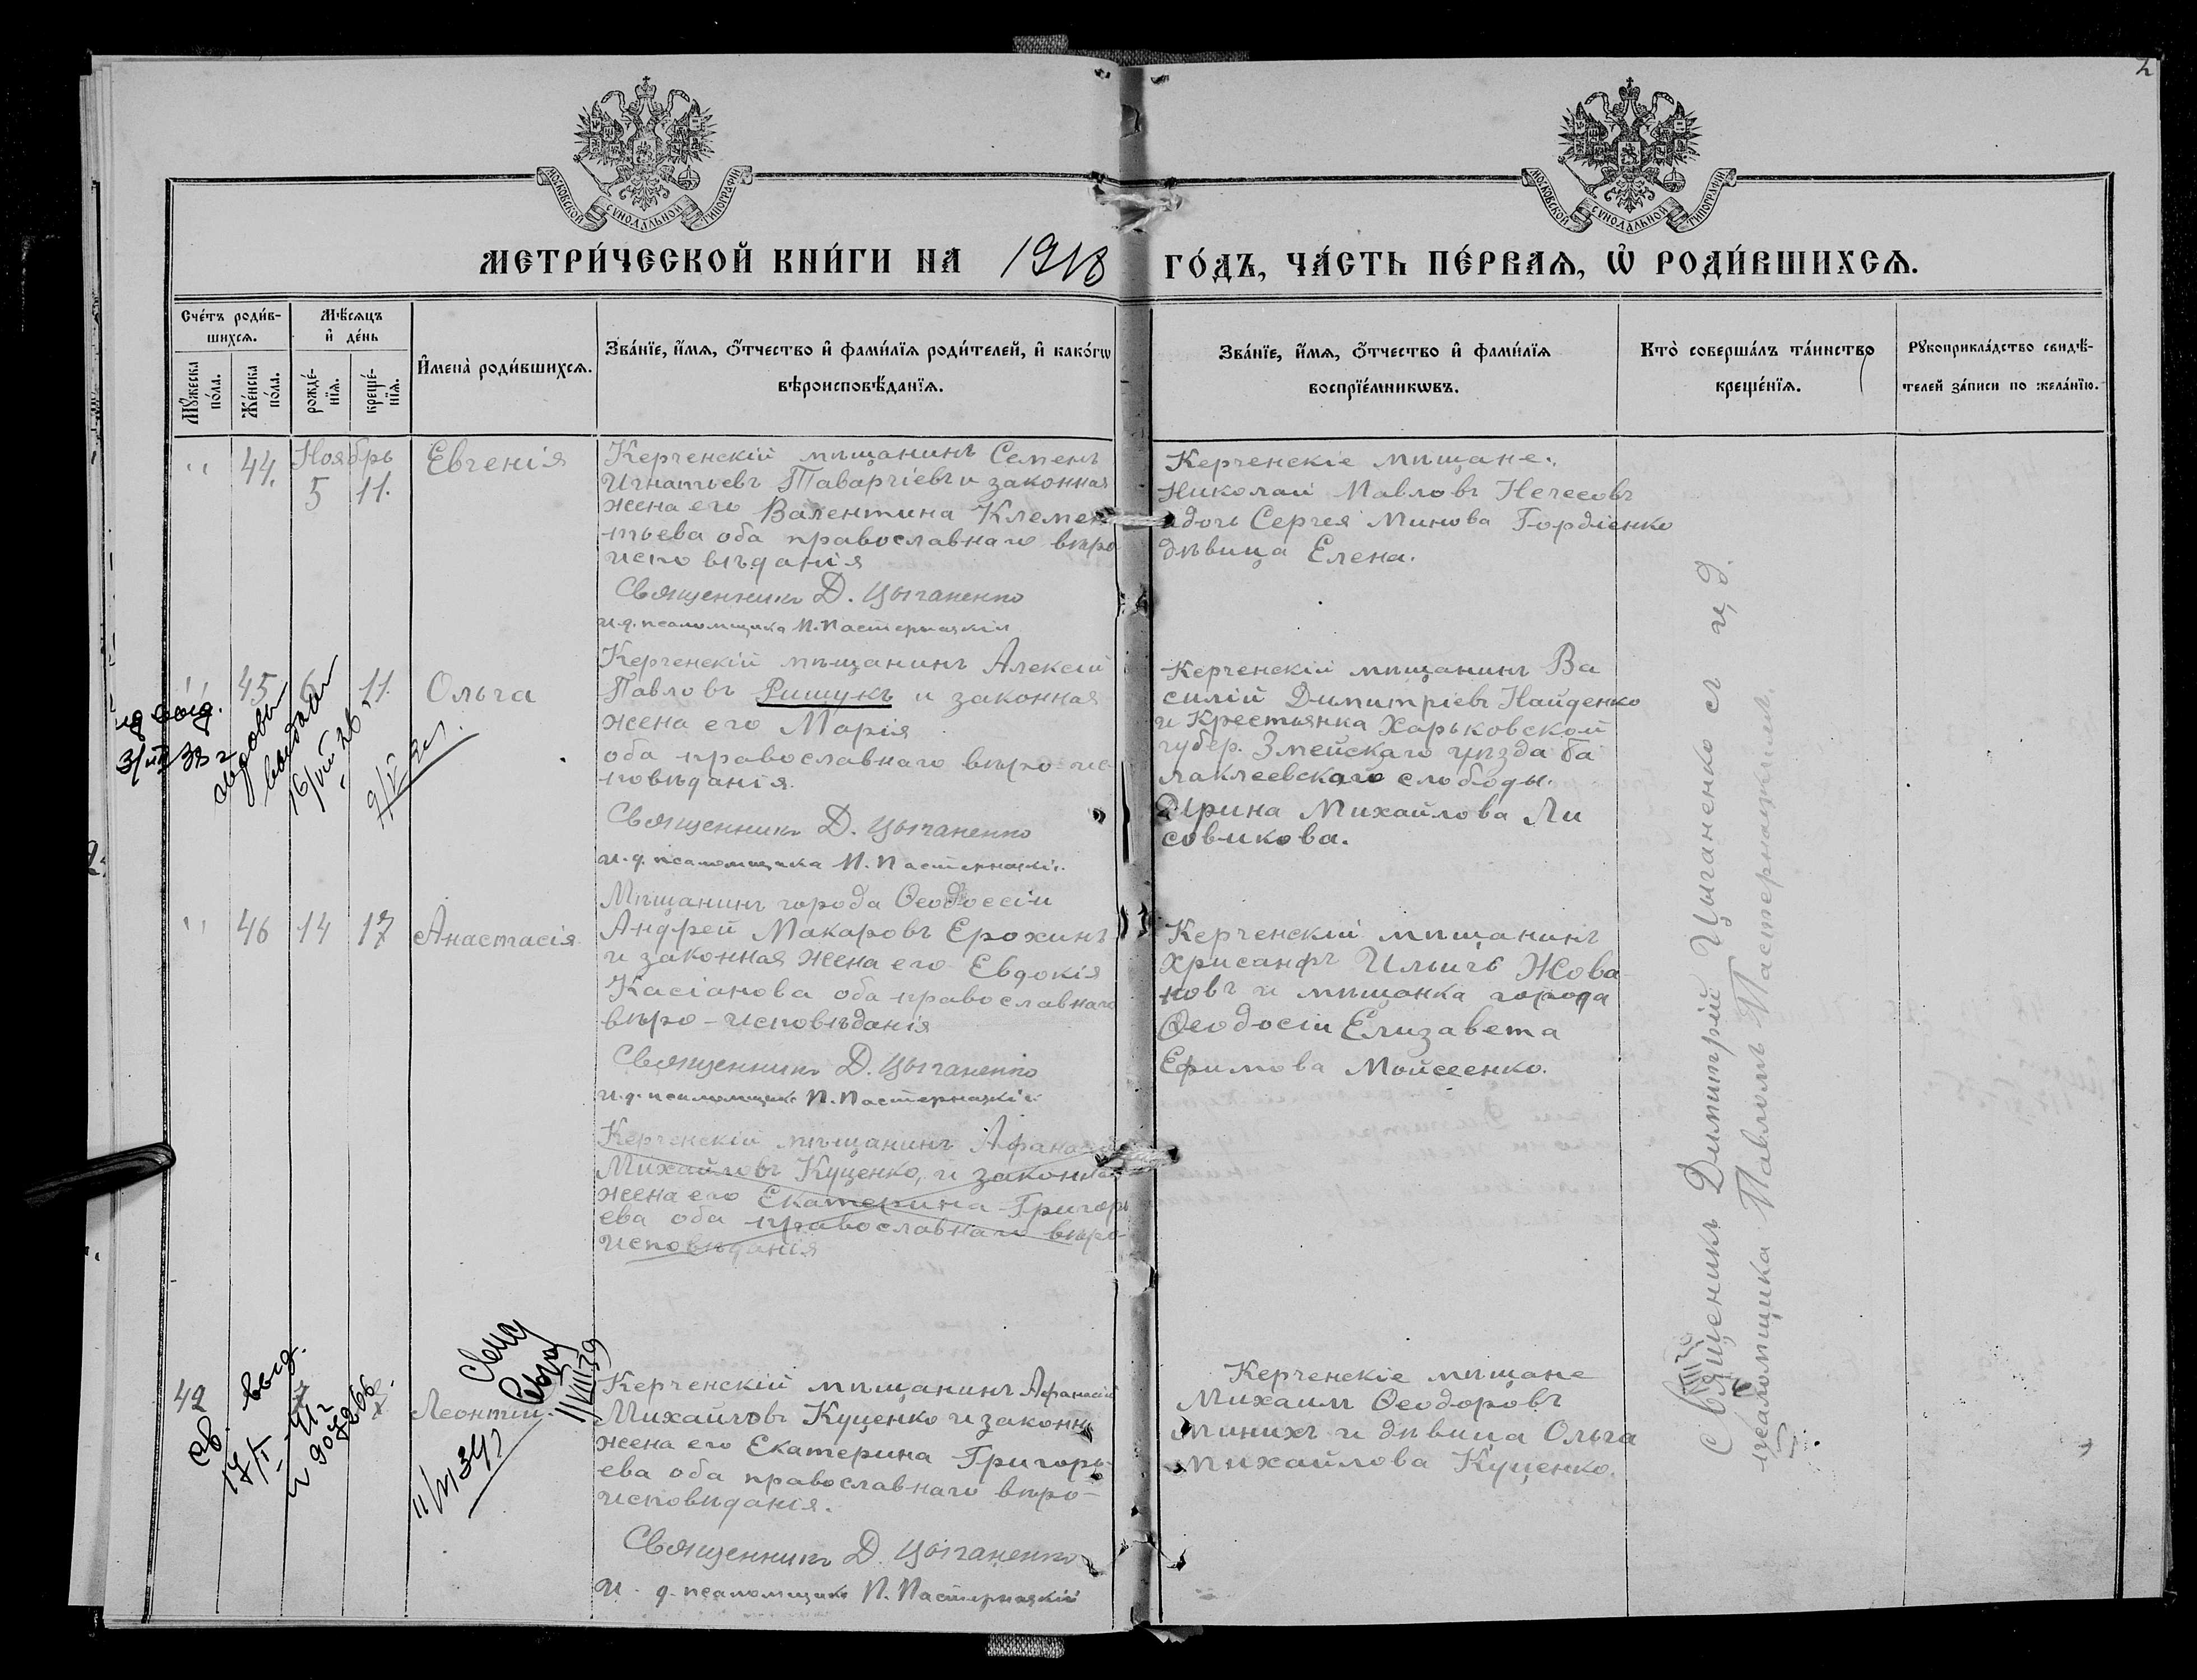 2
МОСКОВСКОЙ СѴНОДАЛЬНОЙ ТИПОГРАФІИ
МОСКОВСКОЙ СѴНОДАЛЬНОЙ ТИПОГРАФІИ
МЕТРИ́ЧЕСКОЙ КНИ́ГИ НА 1918 ГО́ДЪ, ЧА́СТЬ ПЕ́РВАѦ, Ѡ҆ РОДИ́ВШИХСѦ.
Сче́тъ роди́в-
шихсѧ.
Мꙋ́жеска по́ла.
Же́нска по́ла.
Мѣ́сѧцъ
и҆ де́нь
рожде́-
нїѧ.
креще́-
нїѧ.
И҆мена̀ роди́вшихсѧ.
Зва́нїе, и҆́мѧ, ѻ҆́тчество и҆ фами́лїѧ роди́телей, и҆ како́гѡ
вѣроисповѣ́данїѧ.
Зва́нїе, и҆́мѧ, ѻ҆́тчество и҆ фами́лїѧ
воспрїе́мникѡвъ.
Кто̀ соверша́лъ та́инство
креще́нїѧ.
Рꙋкоприкла́дство свидѣ́-
телей за́писи по жела́нїю.
" 44. Ноябрь 5 11. Евгенія
Керченскій мѣщанинъ Семенъ
Игнатьевъ Таварчіевъ и законная
жена его Валентина Клемен
тьева оба православнаго вѣро
исповѣданія
Священникъ Д. Цыганенко
и.д. псаломщика П. Пастернацкій
Керченскіе мѣщане:
Николай Павловъ Нечесовъ
и дочь Сергея Минова Гордіенко
дѣвица Елена.
" 45 6 11. Ольга
выд.
выдан
16/VII 26
Керченскій мѣщанинъ Алексій
Павловъ Рищукъ и законная
жена его Марія
оба православнаго вѣро-ис
повѣданія.
Священникъ Д. Цыганенко
и.д. псаломщика П. Пастернацкій
Керченскій мѣщанинъ Ва
силій Димитріевъ Найденко
и Крестьянка Харьковской
губер. Змейскаго уѣзда Ба
лаклеевскаго слободы.
Ирина Михайлова Ли
совикова.
" 46 14 17 Анастасія
Мѣщанинъ города Ѳеодоссіи
Андрей Макаровъ Ерохинъ
и законная жена его Евдокія
Касіанова оба православнаго
вѣро-исповѣданія
Священникъ Д. Цыганенко
и.д. псаломщика П. Пастернацкій
Керченскій мѣщанинъ
Хрисанфъ Ильичъ Жова
новъ и мѣщанка города
Ѳеодосіи Елизавета
Ефимова Мойсеенко.
Керченскій мѣщанинъ Афанасій
Михайловъ Куценко, и законная
жена его Екатерина Григорь
ева оба православнаго вѣро-
исповѣданія
42 Леонтій.
выд.
Керченскій мѣщанинъ Афанасій
Михайловъ Куценко и законная
жена его Екатерина Григорь
ева оба православнаго вѣро-
исповѣданія.
Священникъ Д. Цыганенко
и.д. псаломщика П. Пастернацкій
Керченскіе мѣщане
Михаилъ Ѳеодоровъ
Минихъ и дѣвица Ольга
Михайлова Куценко.
Священникъ Димитрій Цыганенко съ и.д.
псаломщика Павломъ Пастернацкимъ.